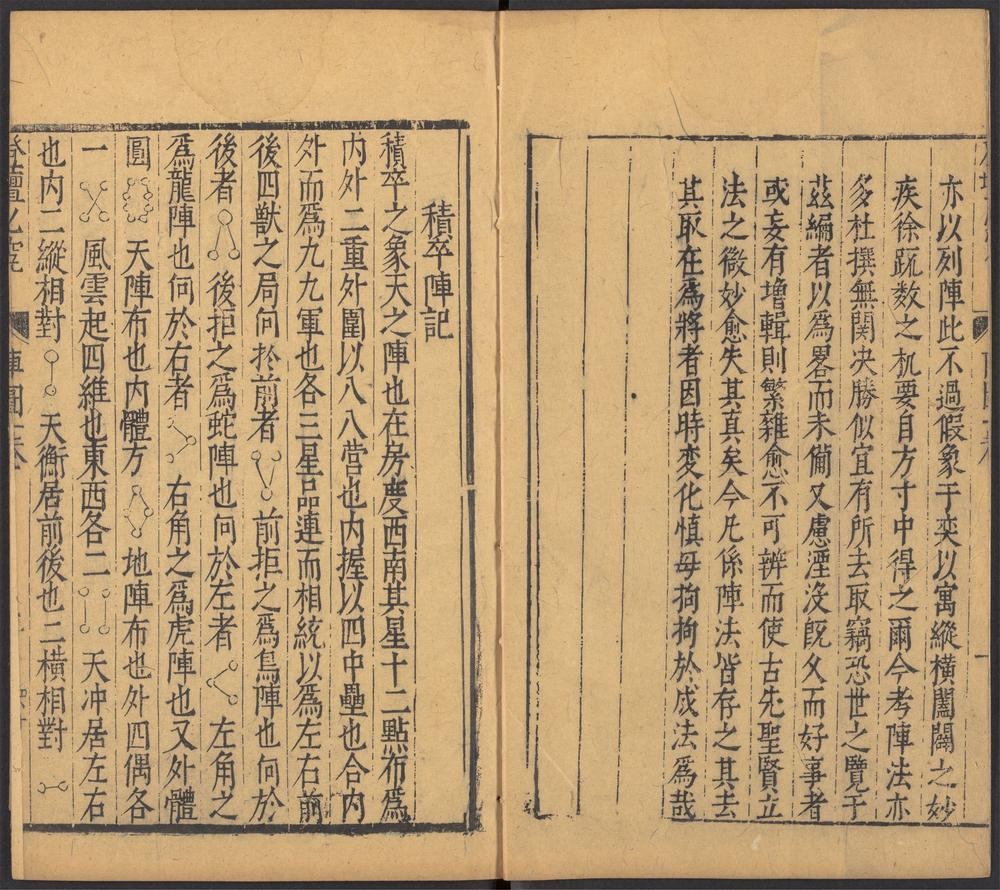 亦以列陣此不過假象于奕以寓縱橫闔闢之妙
疾徐䟽数之机要自方寸中得之爾今考陣法亦
多杜撰無関决勝似宜有所去取竊恐世之覽于
茲編者以爲畧而未備又慮湮沒旣久而好事者
或妄有增輯則繁雜愈不可辨而使古先聖賢立
法之微妙愈失其真矣今凡係陣法皆存之其去
其取在爲將者因時变化慎毋拘拘於成法爲哉
積卒陣記
積卒之象天之陣也在房度西南其星十二點布爲
内外二重外圍以八八營也内握以四中壘也合内
外而爲九九軍也各三星品連而相統以爲左右前
後四獸之局何於前者 前拒之爲鳥陣也何於
後者 後拒之爲蛇陣也何於左者 左角之
爲龍陣也何於右者 右角之爲虎陣也又外體
圓 天陣布也内體方 地陣布也外四偶各
一 風雲起四維也東西各二 天冲居左右
也内二縱相對 天衡居前後也二橫相對